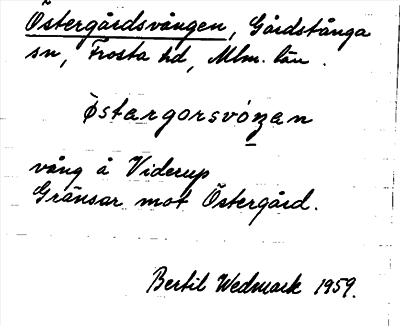 Östergårdsvången, Gårdstånga
sn, Frosta hd, Mlm. län.
östargorsvóŋan
vång å Viderup
Gränsar mot Östergård.
Bertil Wedmark 1959.